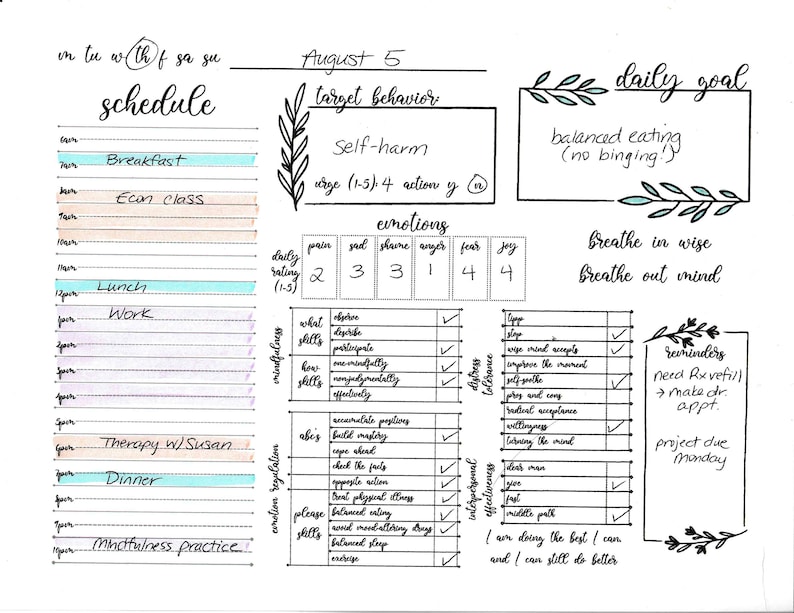 m tu w th f sa su August 5
schedule
6am
7am Breakfast
8am Econ class
9am
10am
11am
12pm Lunch
1pm Work
2pm
3pm
4pm
5pm
6pm Therapy w/ Susan
7pm Dinner
8pm
9pm
10pm Mindfulness practice
target behavior:
Self-harm
urge (1-5): 4 action y n
daily goal
balanced eating
(no binging!)
emotions
daily
rating
(1-5)
pain sad shame anger fear joy
2 3 3 1 4 4
breathe in wise
breathe out mind
mindfulness
what
skills
observe ✓
describe
participate ✓
how
skills
one-mindfully ✓
nonjudgmentally ✓
effectively
emotion regulation
abc's
accumulate positives
build mastery ✓
cope ahead
check the facts ✓
opposite action ✓
please
skills
treat physical illness ✓
balanced eating ✓
avoid mood-altering drugs ✓
balanced sleep
exercise ✓
distress
tolerance
tipp
stop ✓
wise mind accepts ✓
improve the moment
self-soothe ✓
pros and cons
radical acceptance
willingness ✓
turning the mind
interpersonal
effectiveness
dear man
give ✓
fast
middle path ✓
I am doing the best I can
and I can still do better
reminders
need Rx refill
→ make dr.
appt.
project due
Monday